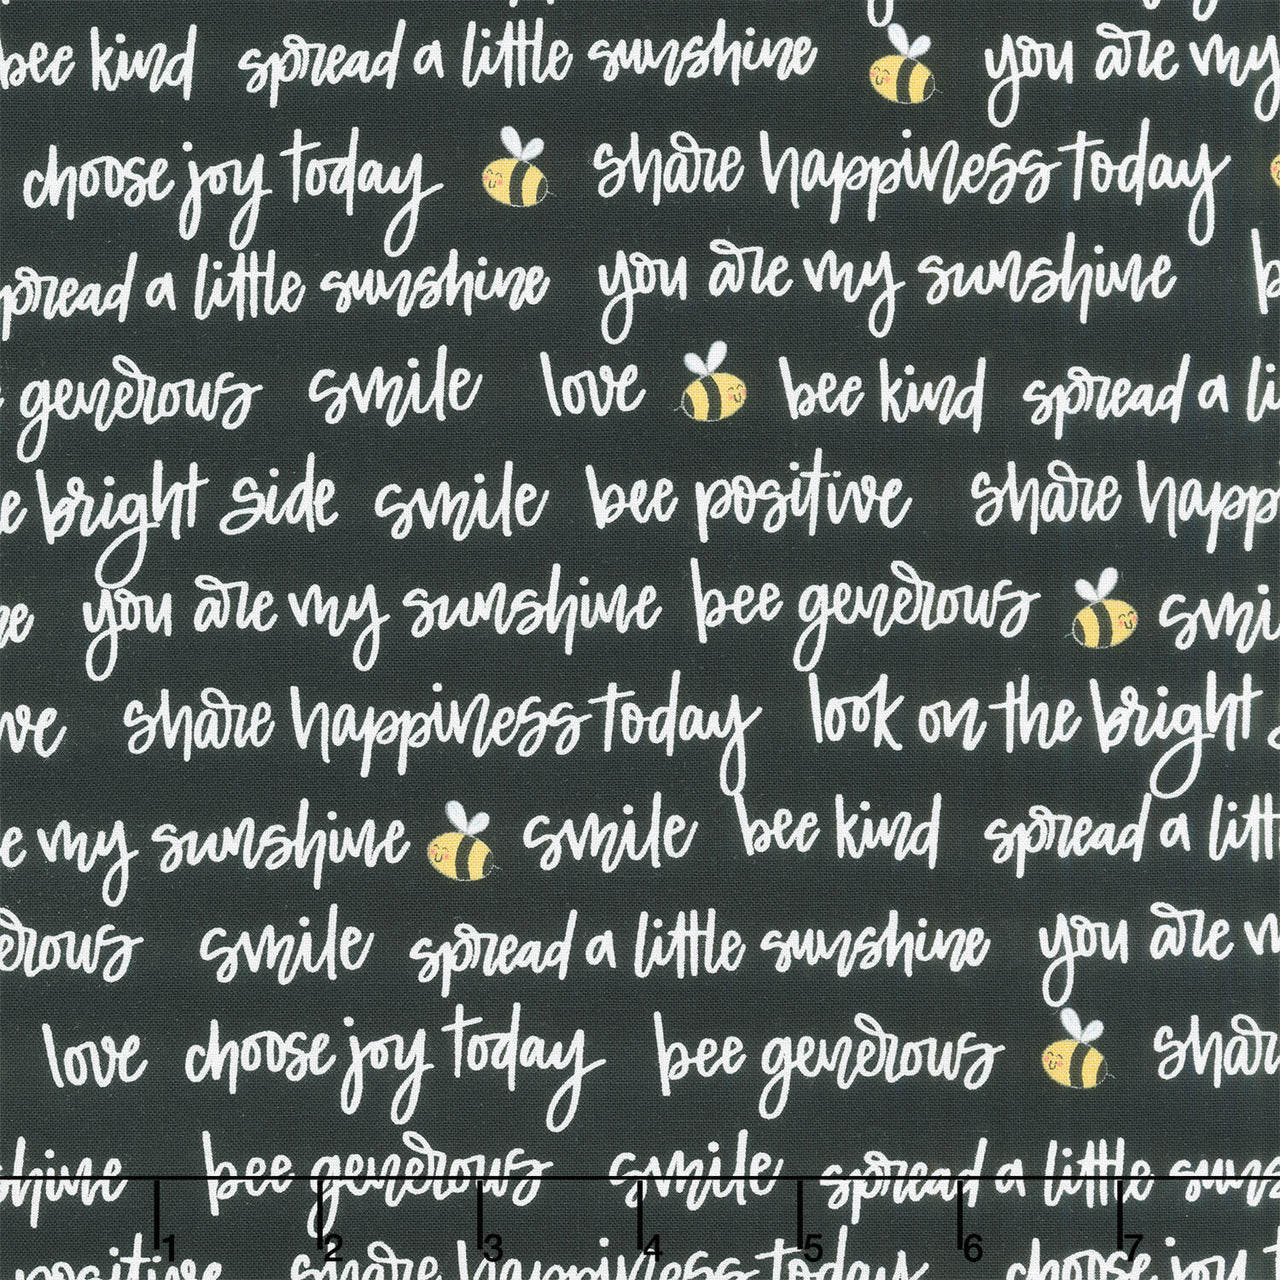 bee kind spread a little sunshine you are my
choose joy today share happiness today
spread a little sunshine you are my sunshine
generous smile love bee kind spread a li
e bright side smile bee positive share happ
you are my sunshine bee generous smi
ve share happiness today look on the bright
e my sunshine smile bee kind spread a litt
erous smile spread a little sunshine you are m
love choose joy today bee generous shar
shine bee generous smile spread a little suns
1 2 3 4 5 6 7
positive share happiness today choose joy t